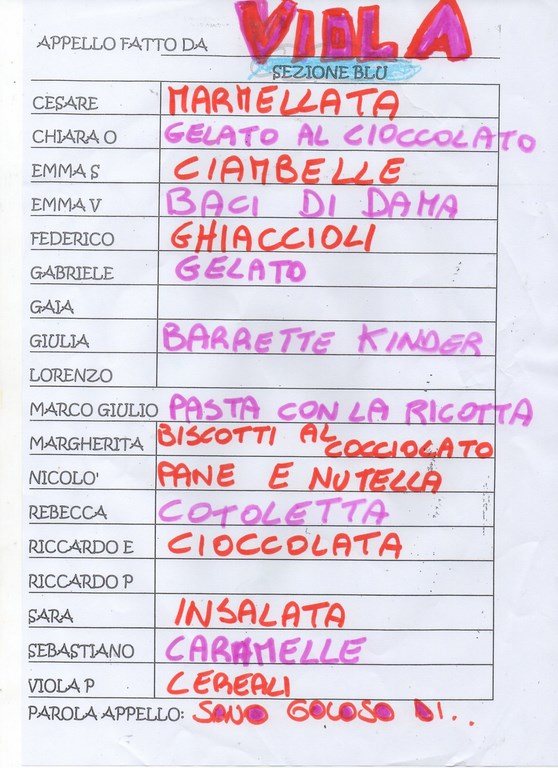 APPELLO FATTO DA VIOLA
SEZIONE BLU
CESARE MARMELLATA
CHIARA O GELATO AL CIOCCOLATO
EMMA S CIAMBELLE
EMMA V BACI DI DAMA
FEDERICO GHIACCIOLI
GABRIELE GELATO
GAIA
GIULIA BARRETTE KINDER
LORENZO
MARCO GIULIO PASTA CON LA RICOTTA
MARGHERITA BISCOTTI AL COCCIOLATO
NICOLO' PANE E NUTELLA
REBECCA COTOLETTA
RICCARDO E CIOCCOLATA
RICCARDO P
SARA INSALATA
SEBASTIANO CARAMELLE
VIOLA P CEREALI
PAROLA APPELLO: SONO GOLOSO DI..